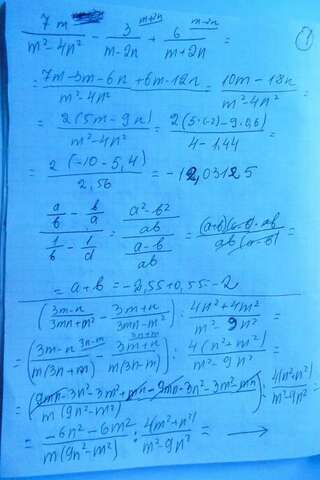 7m / (m²-4n²) - 3 / (m-2n) (m+2n) + 6 / (m+2n) (m-2n) =
①
= (7m-3m-6n+6m-12n) / (m²-4n²) = (10m-18n) / (m²-4n²) =
= 2(5m-9n) / (m²-4n²) = 2(5·(-2)-9·0,6) / (4-1,44) =
= 2(-10-5,4) / 2,56 = -12,03125
(a/b - b/a) / (1/b - 1/a) = ((a²-b²)/ab) / ((a-b)/ab) = (a+b)(a-b)·ab / ab(a-b) =
= a+b = -2,55+0,55=-2
((3m-n)/(3mn+m²) - (3m+n)/(3mn-m²)) : (4n²+4m²)/(m²-9n²) =
= ((3m-n)/(m(3n+m)) (3n-m) - (3m+n)/(m(3n-m)) (3n+m)) : 4(n²+m²)/(m²-9n²) =
= (9mn-3n²-3m²+mn-9mn-3n²-3m²-mn) / (m(9n²-m²)) : 4(n²+n²)/(m²-9n²) =
= (-6n²-6m²) / (m(9n²-m²)) : 4(m²+n²)/(m²-9n²) = →